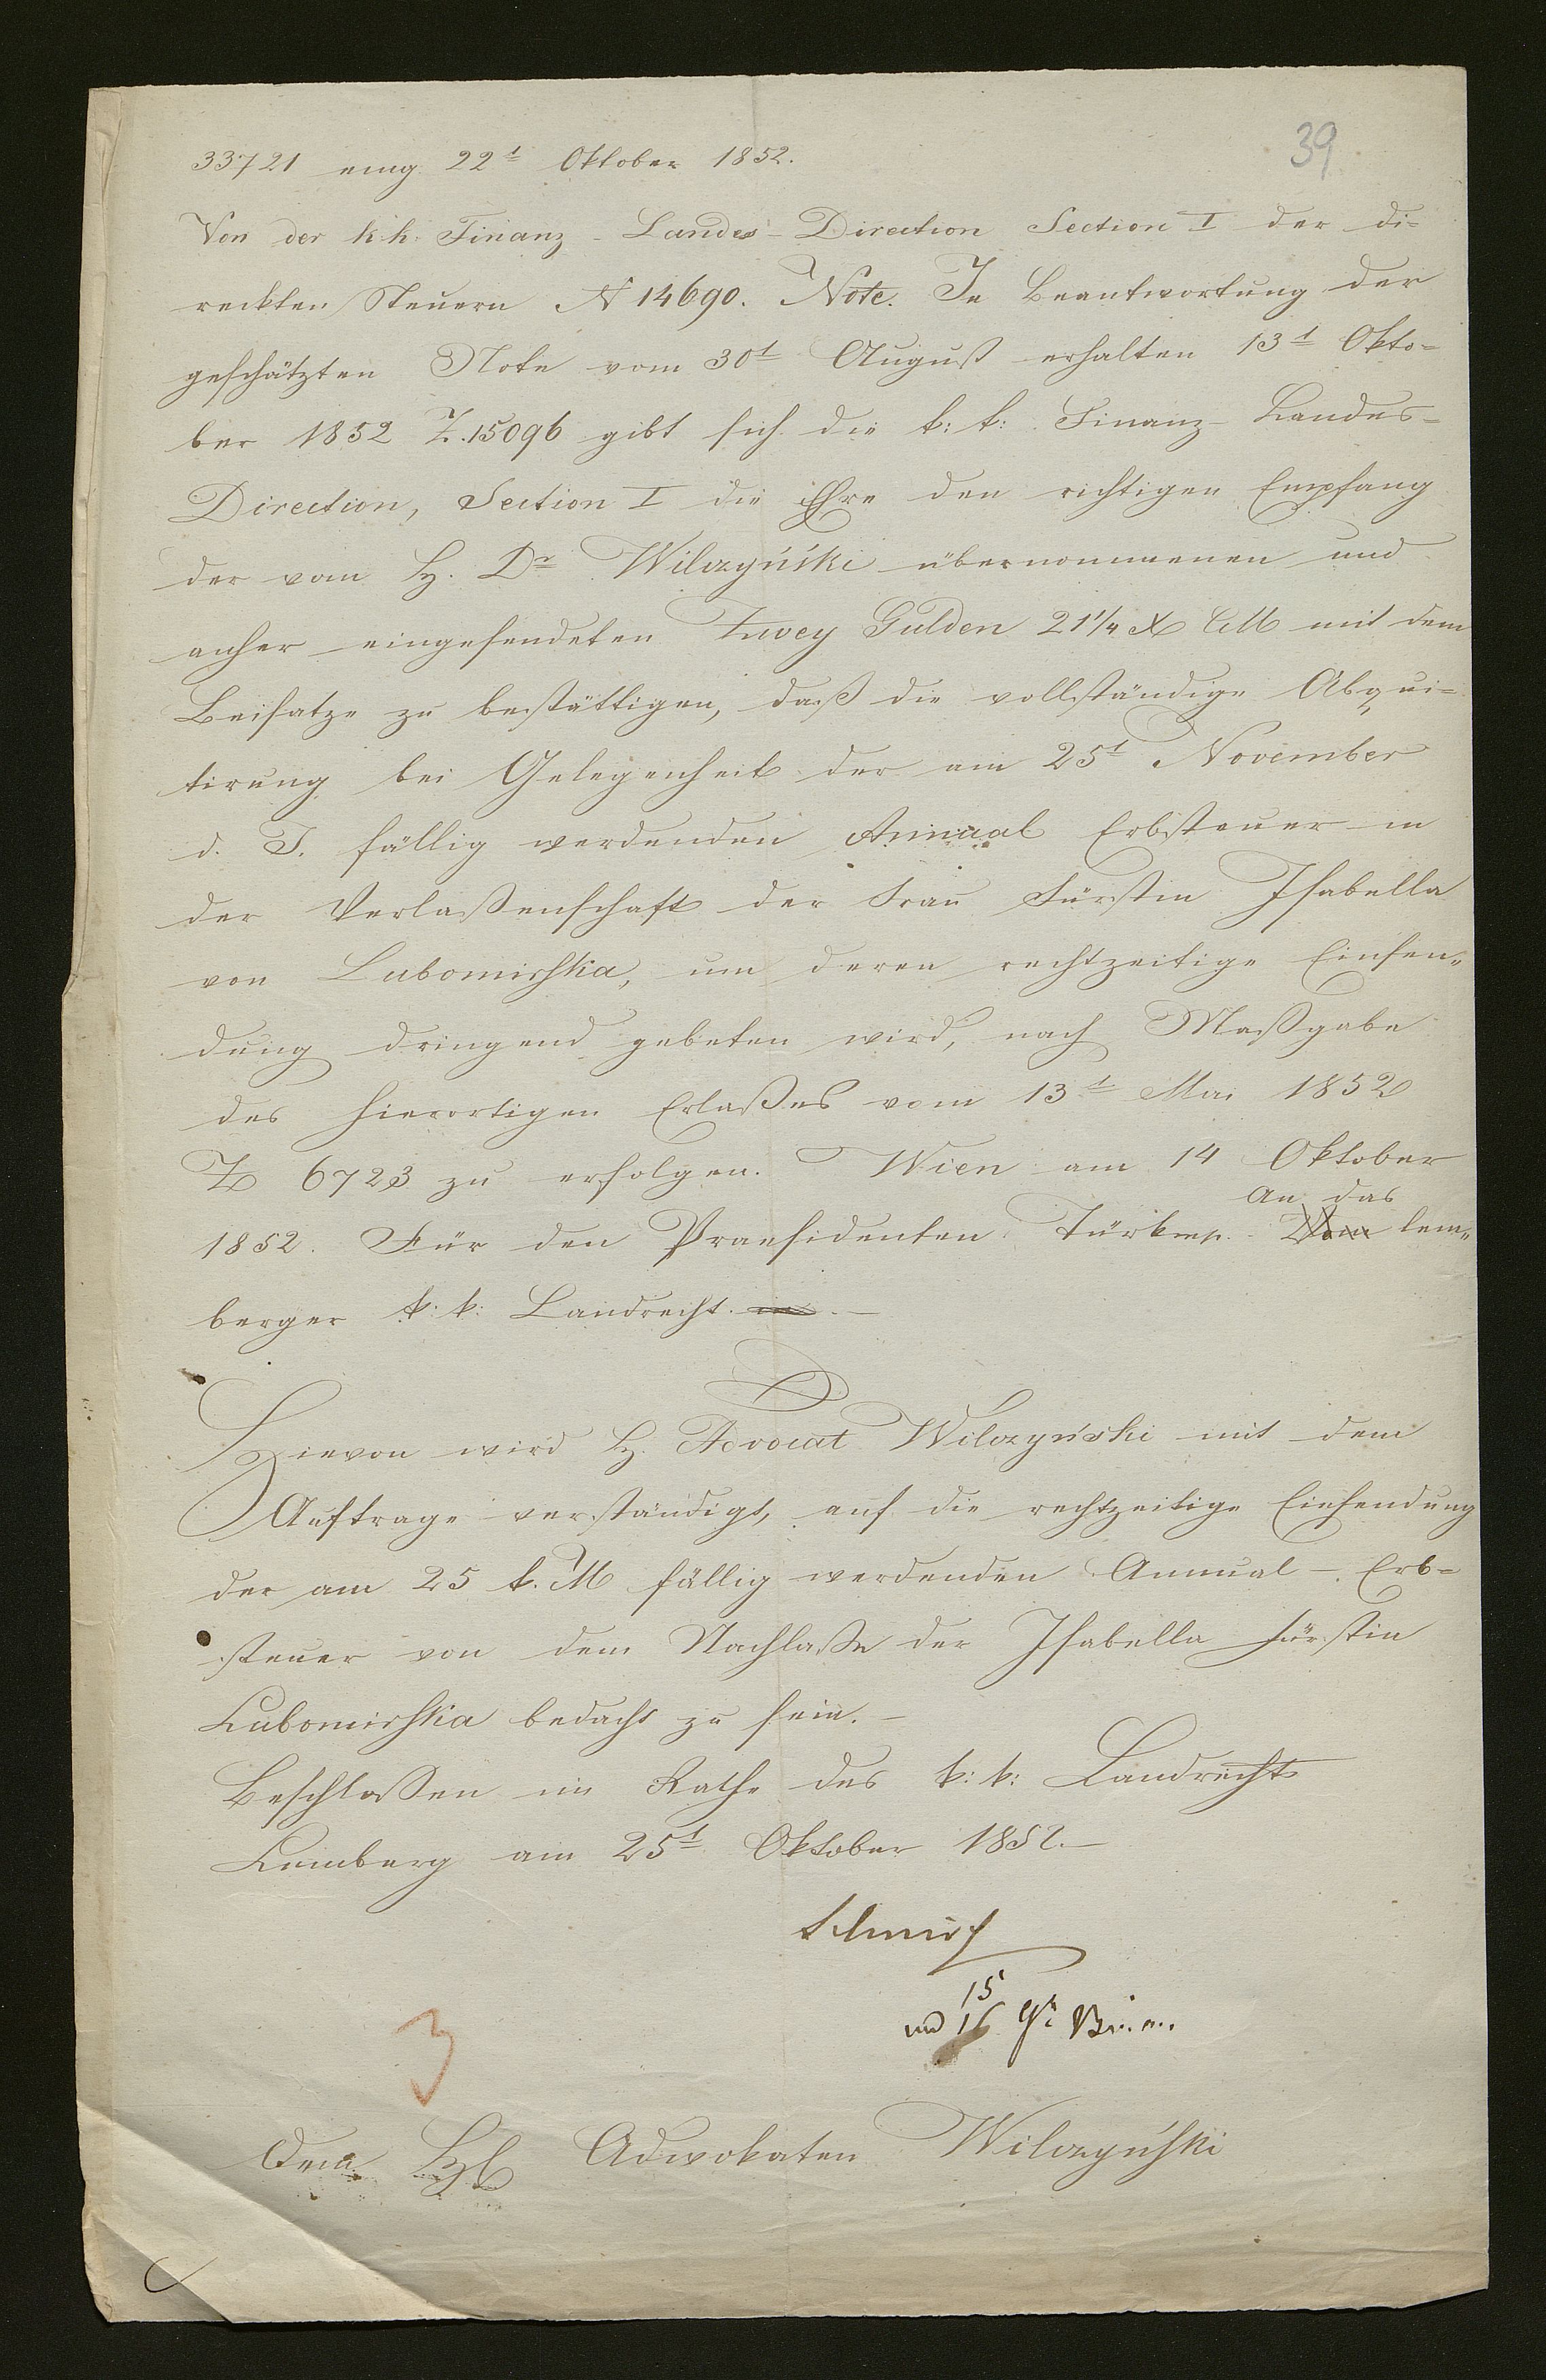 39
33721 eing 22t Oktober 1852.
Von der k.k. Finanz-Landes-Direction Section I der di=
reckten Steuern N 14690. Note. In Beantwortung der
geschätzten Note vom 30t August erhalten 13t Okto=
ber 1852 Z. 15096 gibt sich die k: k: Finanz-Landes-
Direction, Section I die Ehre den richtigen Empfang
der vom H. Dr Wilczyński übernommenen und
anher eingesendeten Zwey Gulden 21 1/4 x CM mit dem
Beisatze zu bestättigen, daß die vollständige Abqui=
tirung bei Gelegenheit der am 25t November
d. J. fällig werdenden Annual Erbsteuer in
der Verlaßenschaft der Frau Fürstin Isabella
von Lubomirska, um deren rechtzeitige Einsen=
dung dringend gebeten wird, nach Maßgabe
des hierortigen Erlaßes vom 13t Mai 1852
Z 6723 zu erfolgen. Wien am 14 Oktober
An das
1852. Für den Praesidenten Türk mp. lem=
berger k: k: Landrecht. —
Hievon wird H. Advocat Wilczyński mit dem
Auftrage verständigt, auf die rechtzeitige Einsendung
der am 25 k. M fällig werdenden Annual-Erb=
steuer von dem Nachlaße der Isabella Fürstin
Lubomirska bedacht zu sein. —
Beschloßen im Rathe des k: k: Landrechts
Lemberg am 25t Oktober 1852. —
Schmid
15
und 16
3
Dem H Adwokaten Wilczyński